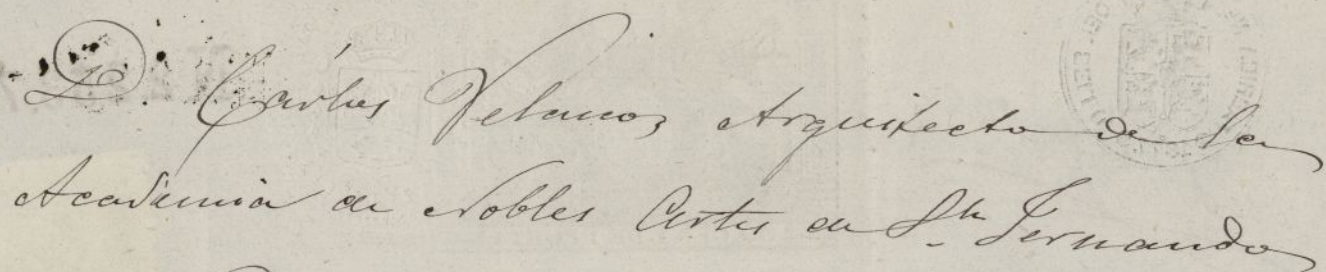 D. Cárlos Velasco, Arquitecto de la
Academia de Nobles Artes de Sn. Fernando